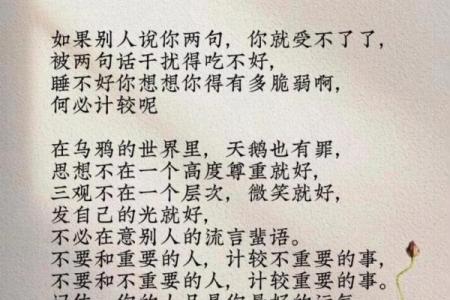 如果别人说你两句，你就受不了了，
被两句话干扰得吃不好，
睡不好你想想你得有多脆弱啊，
何必计较呢
在乌鸦的世界里，天鹅也有罪，
思想不在一个高度尊重就好，
三观不在一个层次，微笑就好，
发自己的光就好，
不必在意别人的流言蜚语。
不要和重要的人，计较不重要的事，
不要和不重要的人，计较重要的事。